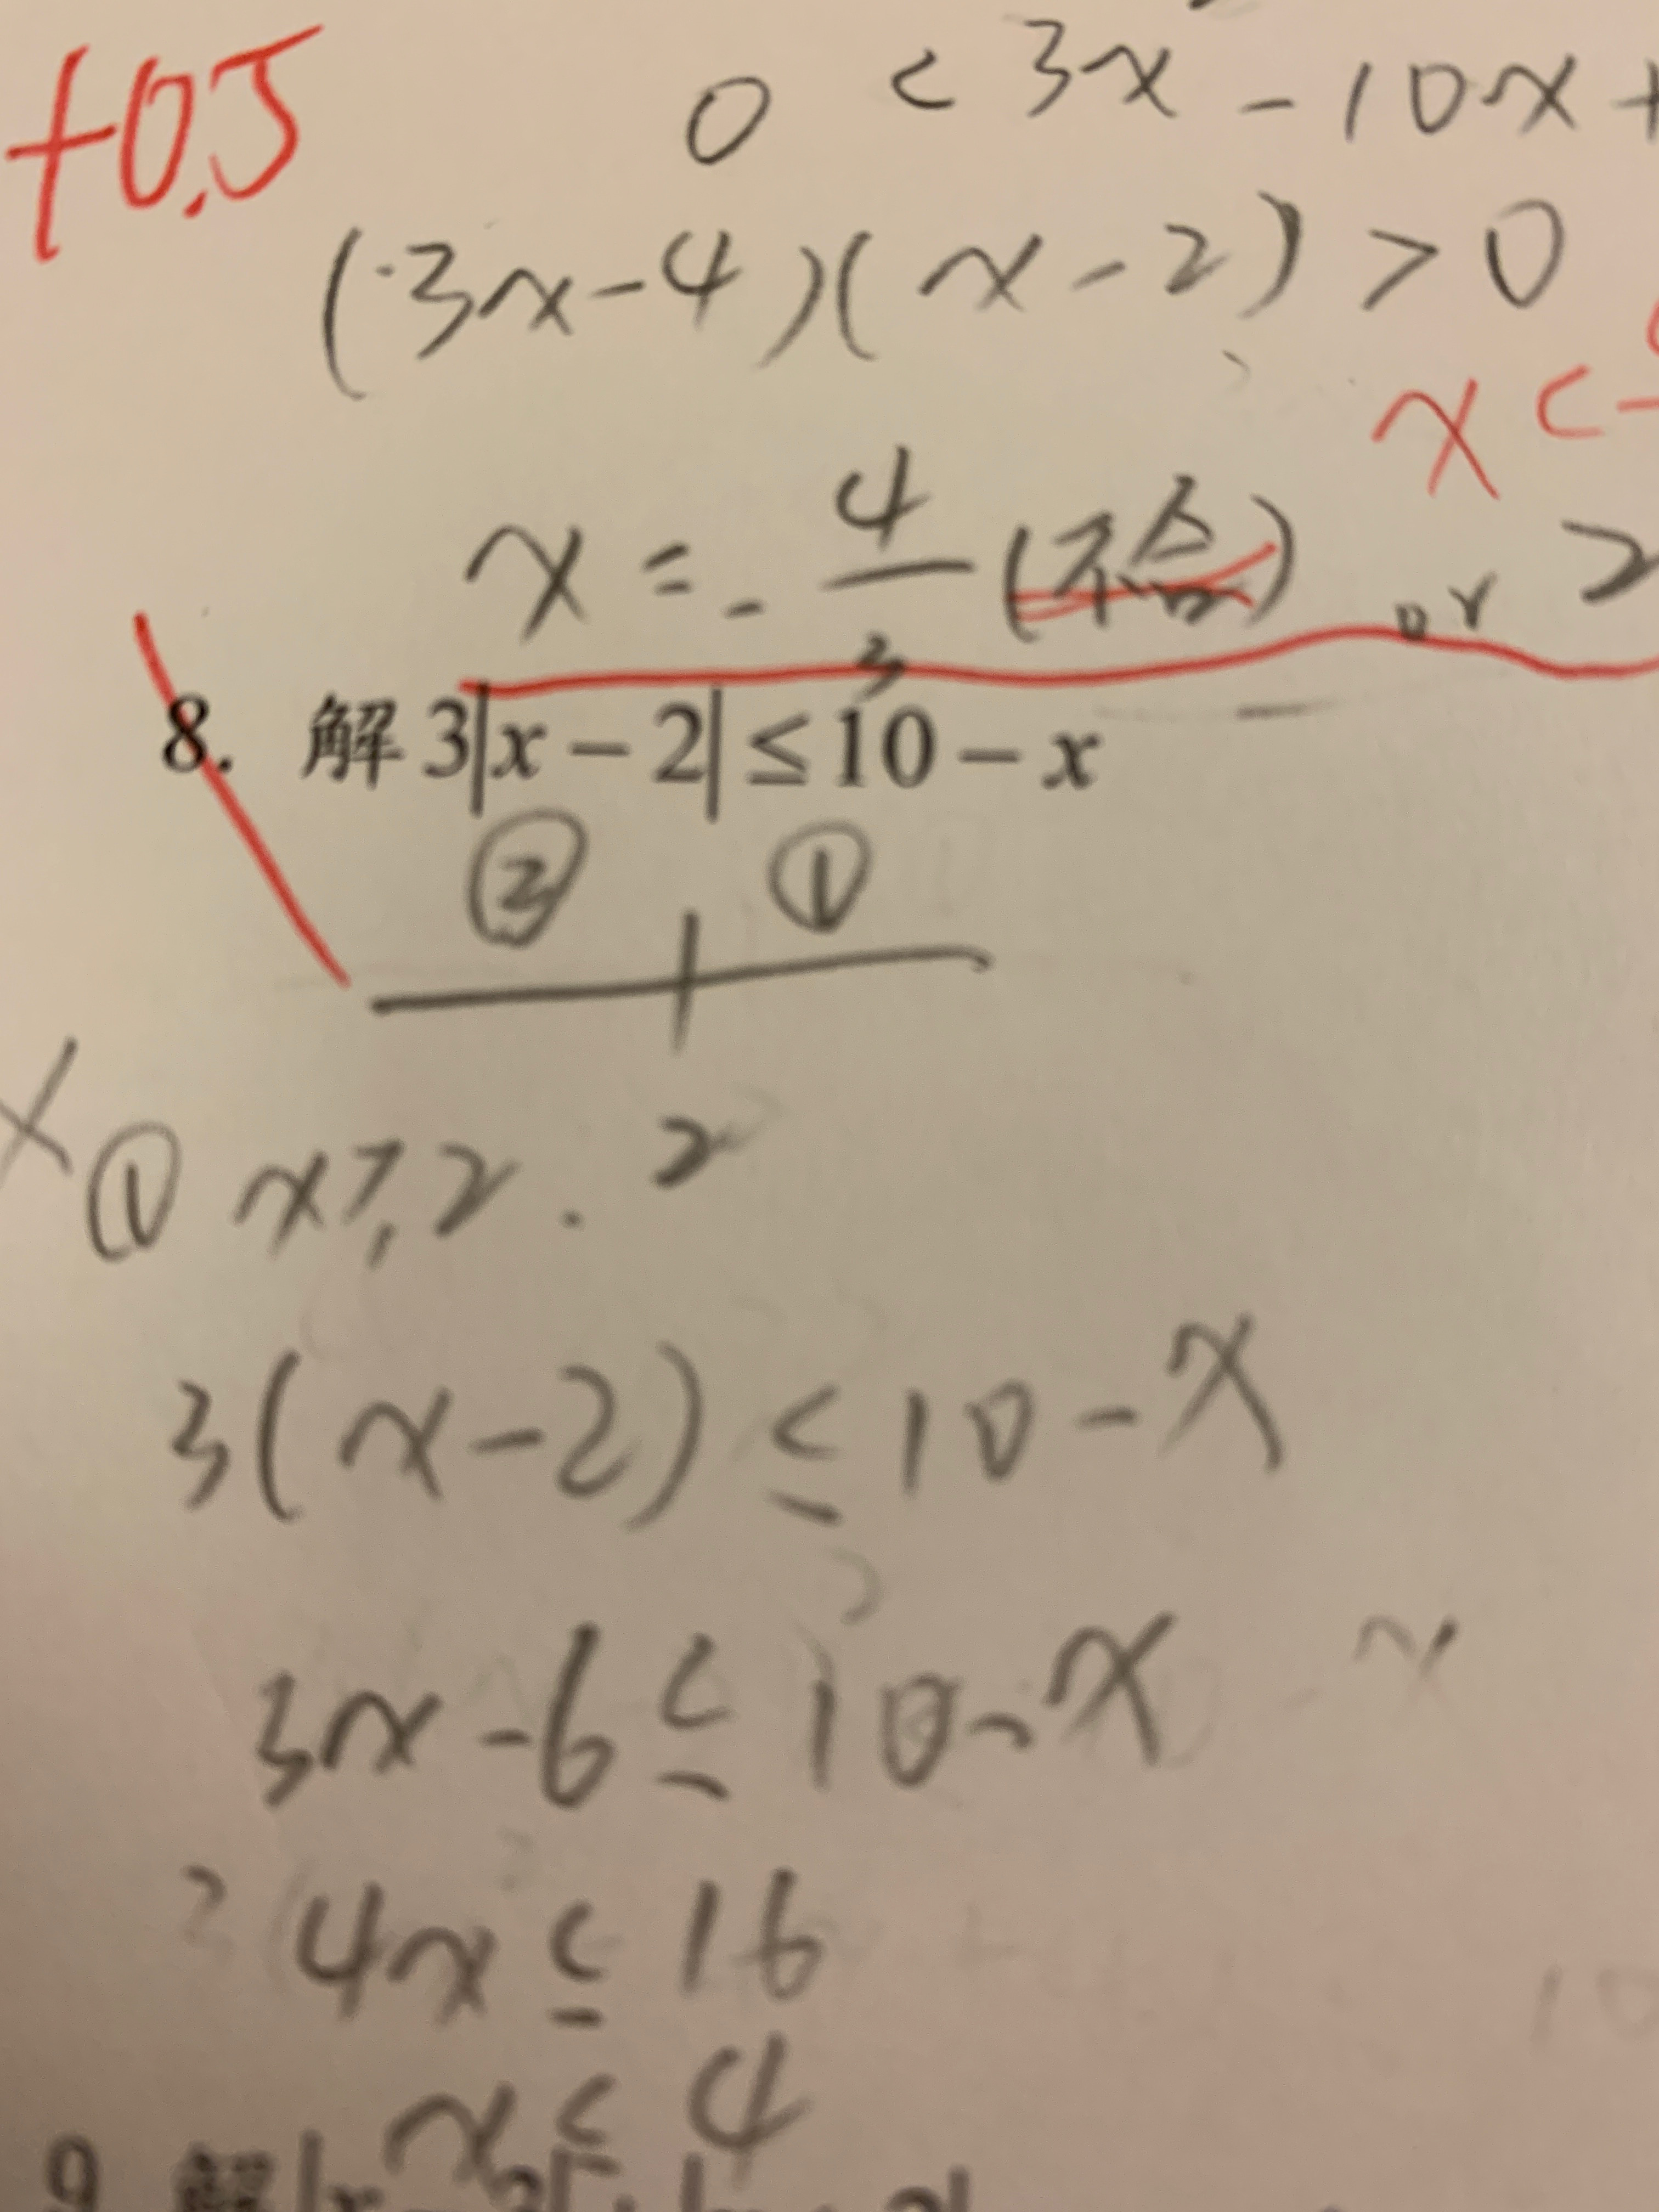 +0.5
0 < 3x - 10x +
(3x-4)(x-2) > 0
x <
x = 4/3 (不合) or 2
8. 解 3|x - 2| ≤ 10 - x
② ①
① x ≥ 2. 2
3(x-2) ≤ 10 - x
3x - 6 ≤ 10 - x
4x ≤ 16
x ≤ 4
9. 解